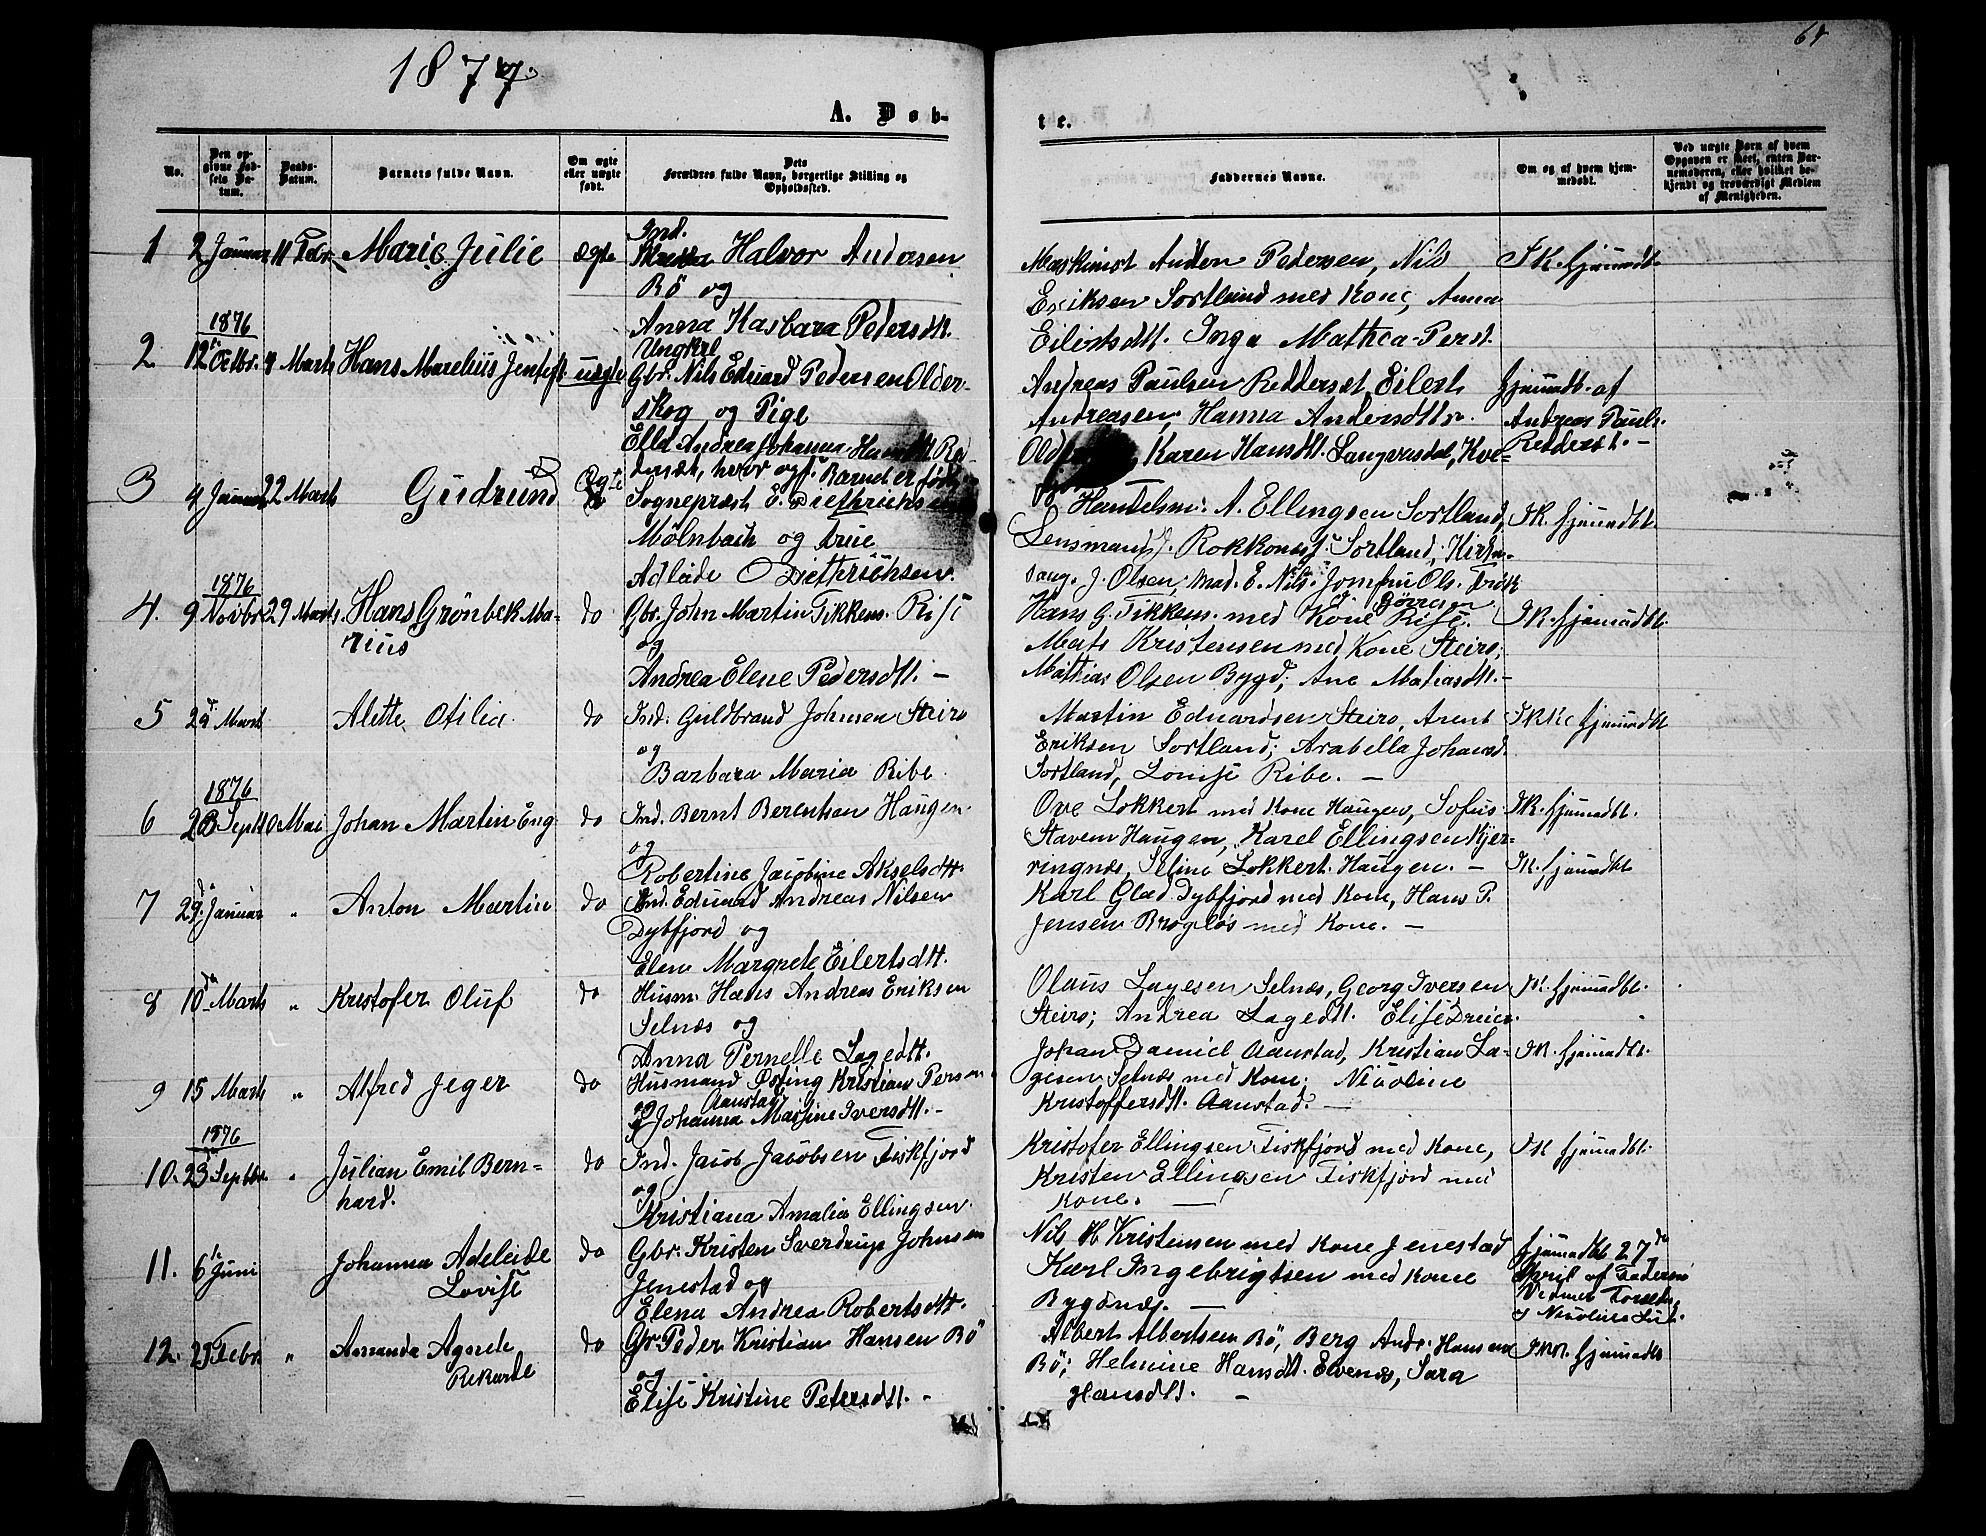 1877.
64
A. Døb-
te.
No.
Den opgivne Fødsels Datum.
Daabs-Datum.
Barnets fulde Navn.
Om ægte eller uægte født.
Dets Forældres fulde Navn, borgerlige Stilling og Opholdssted.
Faddernes Navne.
Om og af hvem hjemmedøbt.
Ved uægte Børn af hvem Opgaven er skeet, enten Barnemoderen, eller hvilket bekjendt og troværdigt Medlem af Menigheden.
1 2 Januar 11 Febr. Marie Julie ægte Ind.
Halvor Andersen
Bö og
Anna Kasbara Pedersdtt.
Maskinist Anden Pedersen, Nils
Eriksen Sortland med Kone, Anna
Eilertsdtt. Inga Mathea Persd.
I K. hjemmedbt.
1876
2 12te Octbr. 4 Marts Hans Marelius Jentoft uægte Ungkrl
Gbr. Nils Eduard Pedersen Older-
skog og Pige
Andrea Johanna Re-
deræt, hvor ogs. Barnet er född
Andreas Paulsen Redderset, Eilert
Andreasen, Hanna Andersdttr.
Karen Hansdt. Langvasdal,
hjemmedb. af
Andreas Pauls.
Redderset. -
3 4 Januar 22 Marts Gudrund Ægte
Sognepræst E. Diethrichsen
Mölnbach og frue
Adleide Dietterichsen.
Handelsm. A. Ellingsen Sortland,
Lensmand J. Rokkones Sortland, Kirke-
sang. J. Olsen, Mad. E. Nils. Jomfru Ols.
I K. hjemmedbt.
1876
4. 9 Novbr. 29 Marts. Hans Grönbek Ma-
rius
do Gbr. John Martin Fikkens. Rise
og
Andrea Elene Pedersdtt. -
Hans G. Fikkens. med Kone Rise.
Mats Kristensen med Kone Steiro;
Mathias Olsen Bygd; Ane Matiasdtt. -
I K. hjemmedbt.
5 Marts Alette Otilia. do Ind. Guldbrand Johnsen Steiro
og
Barbara Maria Ribe.
Martin Eduardsen Steiro, Arent
Eriksen Sortland; Arabella Johansd.
Sortland, Lovise Ribe. -
hjemmedbt
1876
6 Septb. 10 Mai Johan Martin Eng do Ind. Bernt Berentsen Haugen
og
Robertine Jacobine Akselsdtt.
Ove Lokkert med Kone Haugen, Sofus
Stavem Haugen, Karel Ellingsen Kjer-
ringnæs, Seline Lokkert Haugen. -
I K. hjemmedbt.
7 29de Januar " Anton Martin do Ind. Eduard Andreas Nilsen
Dybfjord og
Elen Margrete Eilertsdtt.
Karl Glad Dybfjord med Kone, Hans P.
Jensen Brogløs med Kone. -
I K. hjemmedbt
8 10de Marts " Kristofer Oluf do Husm. Hans Andreas Eriksen
Selnæs og
Anna Pernelle Lagedtt.
Olaus Lagesen Selnæs, Georg Iversen
Steiro; Andrea Lagedtt. Elise Dreier.
I K. hjemmedbt.
9 15 Marts " Alfred Jeger do Husmand Östing Kristian Persen
Aanstad
og Johanna Martine Iversdtt. -
Johan Daniel Aanstad, Kristian La-
gesen Selnæs med Kone; Nicoline
Kristoffersdtt. Aanstad. -
I K. hjemmedbt.
1876
10. 23 Septbr. " Julian Emil Bern-
hard.
do Ind. Jacob Jacobsen Fiskfjord
og
Kristiana Amalia Ellingsen.
Kristofer Ellingsen Fiskfjord med Kone,
Kristen Ellingsen Fiskfjord med
Kone. -
I K hjemmedbt.
11. 6te Juni Johanna Adeleide
Lovise
do Gbr. Kristen Sverdrup Johnsen
Jenestad og
Elena Andrea Robertsdtt.
Nils H Kristensen med Kone Jenestad
Karl Ingebrigtsen med Kone
Bygdnes. -
hjemmedbt 27de
April af Faderen
12. Febr. " Amanda Agnete
Rikarde
do Gbr Peder Kristian Hansen Bö
og
Elise Kristine Petersdtt. -
Albert Albertsen Bö, Berg Andr. Hansen
Bö; Helmine Hansdtt. Evenes, Sara
Hansdtt. -
hjemmedbt